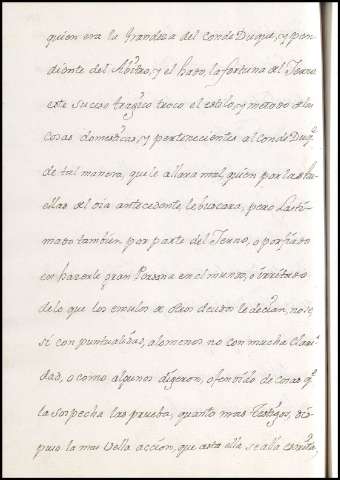 quien era la Grandeza del Conde Duque, y pen
diente del Abitro, y el hado, la fortuna del Yerno
este suceso tragico troco el estilo, y metodo de las
cosas domesticas, y pertenecientes al Conde Duqᵉ
de tal manera, que le allara mal, quien por las hu
ellas del dia antecedente, le buscara, pero Lasti
mado tambien por parte del Yerno, o porfiado
en hazerle gran Persona en el mundo, o irritado
de lo que los emulos de sus deudos le decian, no se
si con puntualidad, alomenos no con mucha Clari
dad, o como algunos digeron, ofendido de cosas qᵉ
la sospecha las prueba, quanto mas Testigos, dis
puso la mas Vella accion, que asta ella se alla escrita,